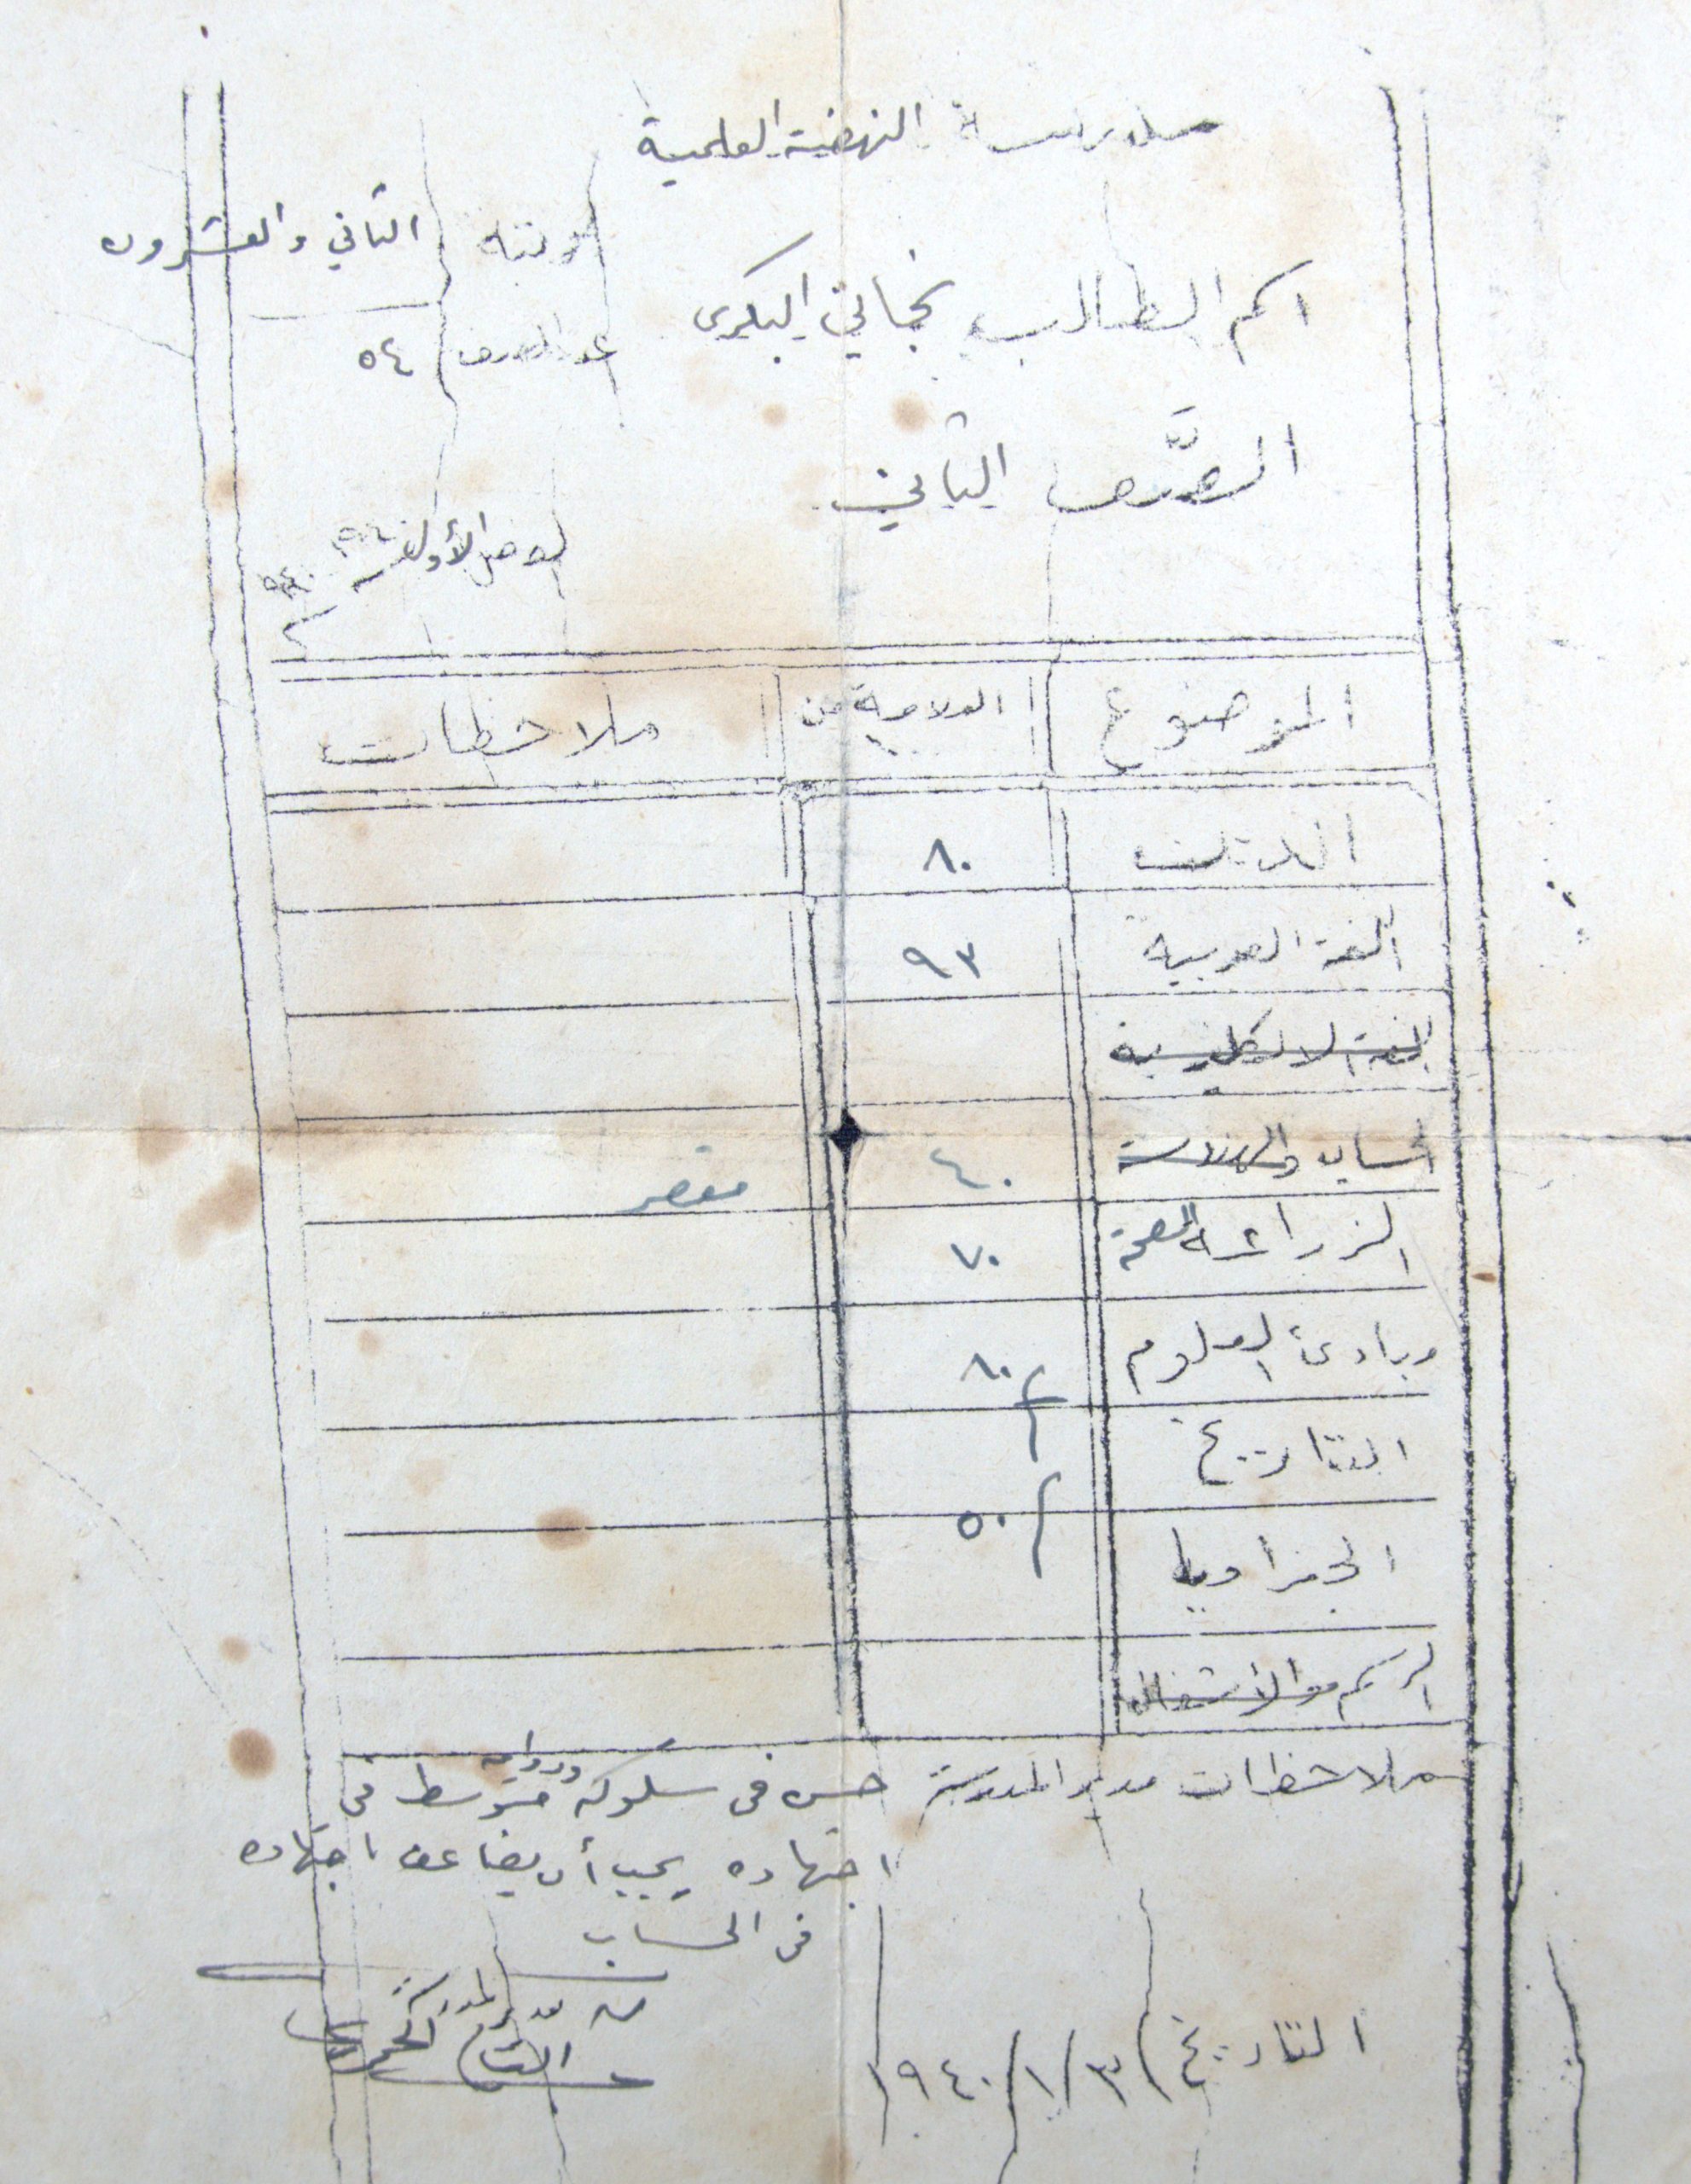 مدرسة النهضة العلمية
رتبته الثاني والعشرون
اسم الطالب نجاتي البكري
عدد الصف ٥٤
الصّف الثاني
الفصل الأول
الموضوع العلامة من ملاحظات
الدين ٨٠
اللغة العربية ٩٣
اللغة الانكليزية
الحساب والهندسة ٤٠ مقصر
الزراعة الصحة ٧٠
مبادئ العلوم ٨٠
التاريخ
٥٠
الجغرافيا
الرسم والأشغال
ملاحظات مدير المدرسة حسن في سلوكه ودوامه متوسط في
اجتهاده يجب أن يضاعف اجتهاده
في الحساب
مدير المدرسة
التاريخ ٣/١/١٩٤٠